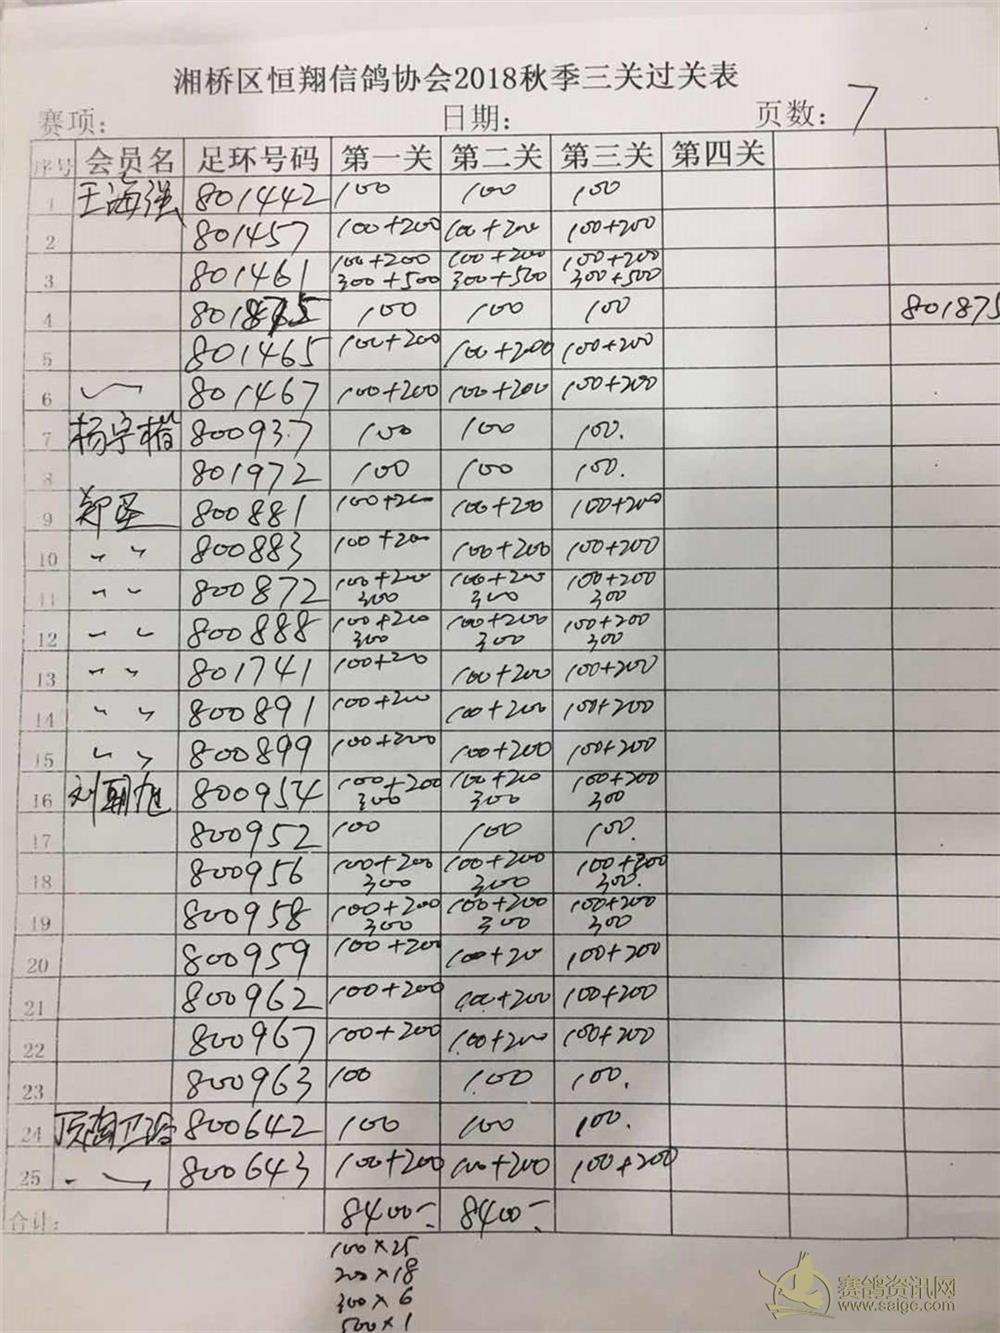 湘桥区恒翔信鸽协会2018秋季三关过关表
赛项: 日期: 页数: 7
序号 会员名 足环号码 第一关 第二关 第三关 第四关
1 王海强 801442 100 100 100
2 801457 100+200 100+200 100+200
3 801461 100+200 300+500 100+200 300+500 100+200 300+500
4 801875 100 100 100 801875
5 801465 100+200 100+200 100+200
6 〃 801467 100+200 100+200 100+200
7 杨宇楷 800937 100 100 100.
8 801972 100 100 100.
9 郑圣 800881 100+200 100+200 100+200
10 〃 800883 100+200 100+200 100+200
11 〃 800872 100+200 300 100+200 300 100+200 300
12 〃 800888 100+200 300 100+200 300 100+200 300
13 〃 801741 100+200 100+200 100+200
14 〃 800891 100+200 100+200 100+200
15 〃 800899 100+200 100+200 100+200
16 刘朝旭 800954 100+200 300 100+200 300 100+200 300
17 800952 100 100 100.
18 800956 100+200 300 100+200 300 100+200 300.
19 800958 100+200 300 100+200 300 100+200 300
20 800959 100+200 100+20 100+200
21 800962 100+200 100+200 100+200
22 800967 100+200 100+200 100+200
23 800963 100 100 100.
24 800642 100 100 100.
25 〃 800643 100+200 100+200 100+200
合计: 8400- 8400-
100×25
200×18
300×6
500×1
赛鸽资讯网
www.saige.com